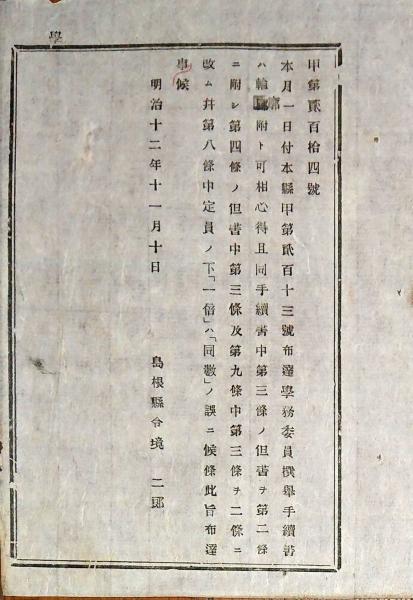 學
甲第貳百拾四號
本月一日付本縣甲第貳百十三號布達學務委員撰擧手續書
ハ輪附ト可相心得且同手續書中第三條ノ但書ヲ第二條
ニ附シ第四條ノ但書中第三條及第九條中第三條ヲ二條ニ
改ム幷第八條中定員ノ下「一倍」ハ「同數」ノ誤ニ候條此旨布達
事候
明治十二年十一月十日
島根縣令境二郎